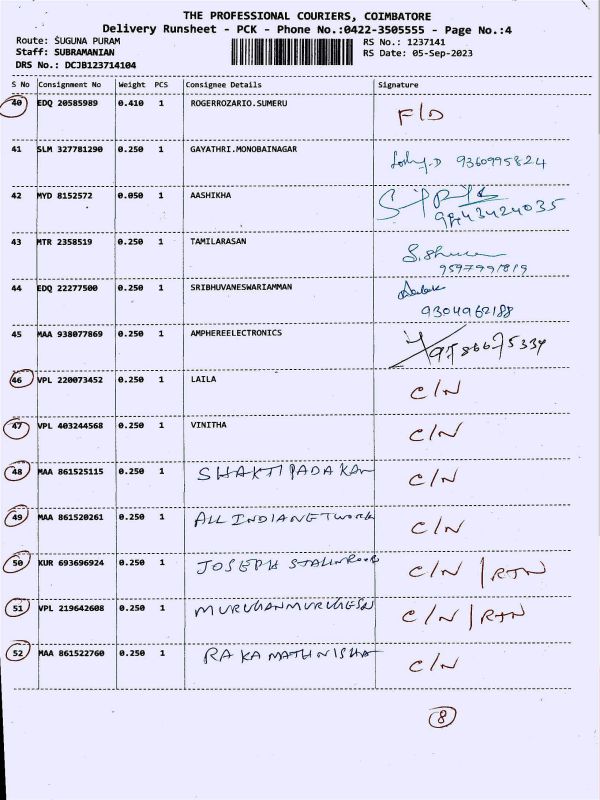 THE PROFESSIONAL COURIERS, COIMBATORE
Delivery Runsheet - PCK - Phone No.:0422-3505555 - Page No.:4
Route: SUGUNA PURAM RS No.: 1237141
Staff: SUBRAMANIAN RS Date: 05-Sep-2023
DRS No.: DCJB123714104
S No Consignment No Weight PCS Consignee Details Signature
40 EDQ 20585989 0.410 1 ROGERROZARIO.SUMERU F/D
41 SLM 327781290 0.250 1 GAYATHRI.MONOBAINAGAR 9360995824
42 MYD 8152572 0.050 1 AASHIKHA
43 MTR 2358519 0.250 1 TAMILARASAN
9597991819
44 EDQ 22277500 0.250 1 SRIBHUVANESWARIAMMAN
9304962188
45 MAA 938077869 0.250 1 AMPHEREELECTRONICS
46 VPL 220073452 0.250 1 LAILA C/N
47 VPL 403244568 0.250 1 VINITHA C/N
48 MAA 861525115 0.250 1 SHAKTIPADA KAR C/N
49 MAA 861520261 0.250 1 ALL INDIA NETWORK C/N
50 KUR 693696924 0.250 1 JOSEPH C/N / RTN
51 VPL 219642608 0.250 1 MURUGANMURUGESN C/N / RTN
52 MAA 861522760 0.250 1 C/N
8